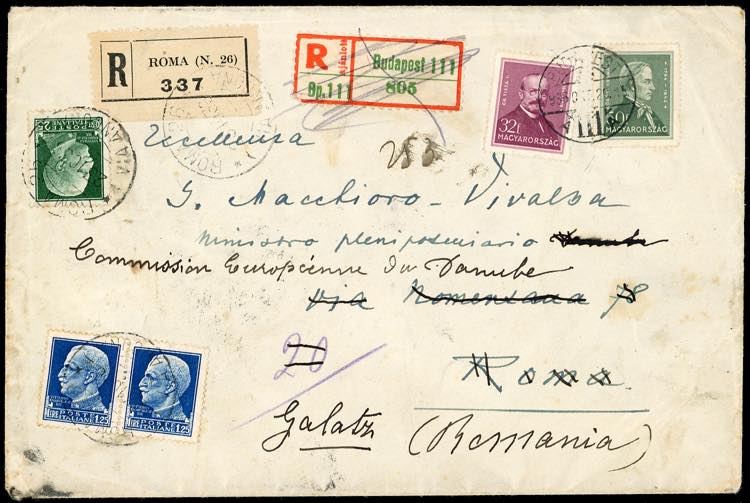 R ROMA (N. 26)
337
R Ajánlott Budapest 111
Bp.111 805
32f
MAGYARORSZÁG
MAGYARORSZÁG
POSTE ITALIANE
Excellenza
G. Macchioro-Vivalba
Ministro plenipotenziario Danube
Commission Européenne du Danube
Via Nomentana 78
20
Roma
Galatz (Romania)
POSTE ITALIANE
LIRE 1,25
POSTE ITALIANE
LIRE 1,25